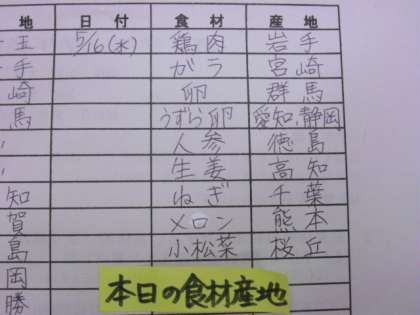 地 日付 食材 産地
玉 5/16(水) 鶏肉 岩手
手 ガラ 宮崎
崎 卵 群馬
馬 うずら卵 愛知、静岡
〃 人参 徳島
〃 生姜 高知
知 ねぎ 千葉
賀 メロン 熊本
島 小松菜 桜丘
岡
勝
本日の食材産地